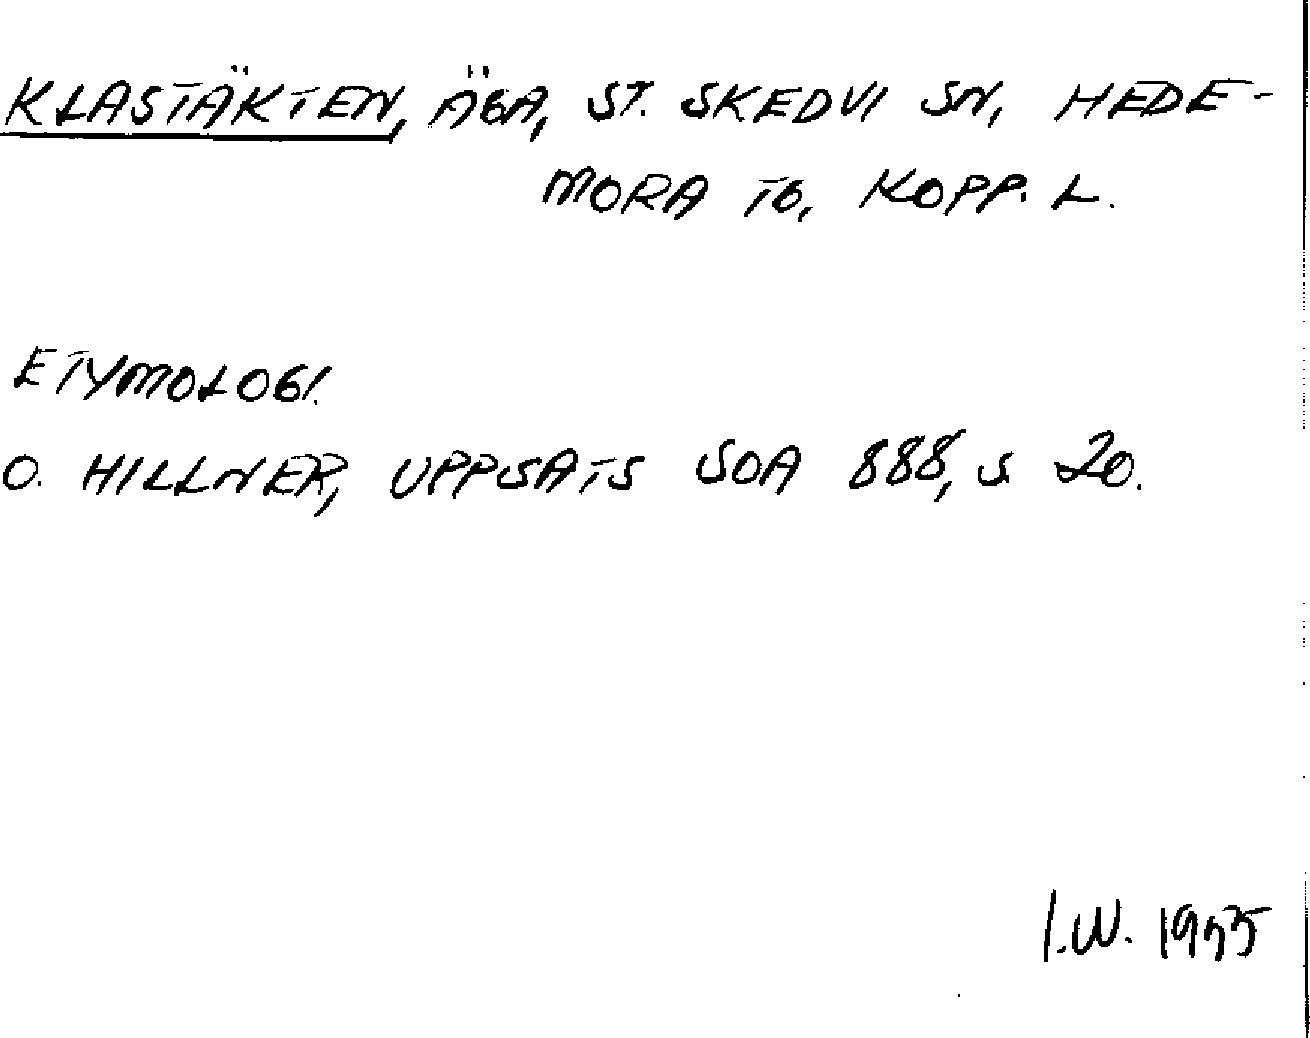 KLASTÄKTEN, ÄGA, ST. SKEDVI SN, HEDE-
MORA TG, KOPP. L.
ETYMOLOGI.
O. HILLNER, UPPSATS SOA 888, S 20.
I.W. 1955